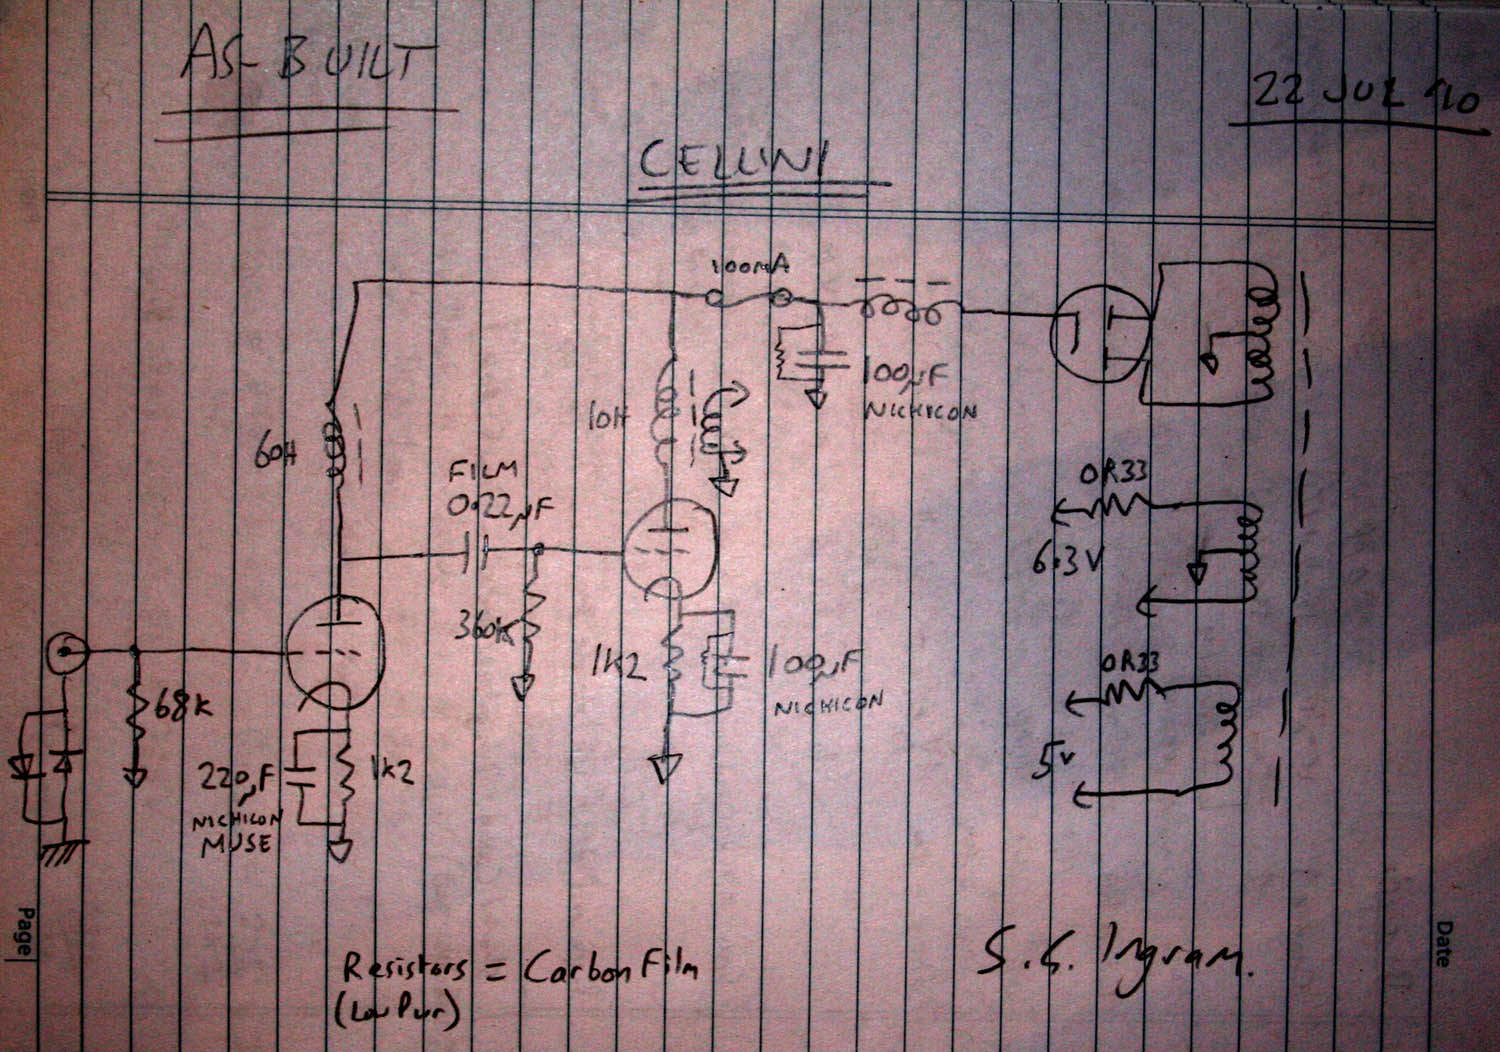 AS-BUILT
22 JUL '10
CELLINI
100mA
100µF
NICHICON
10H
60H
FILM
0.22µF
0R33
6.3V
360K
1K2
100µF
NICHICON
68K
220µF
NICHICON
MUSE
1K2
0R33
5V
Page
Date
Resistors = Carbon Film
(Low Pwr)
S.G. Ingram.